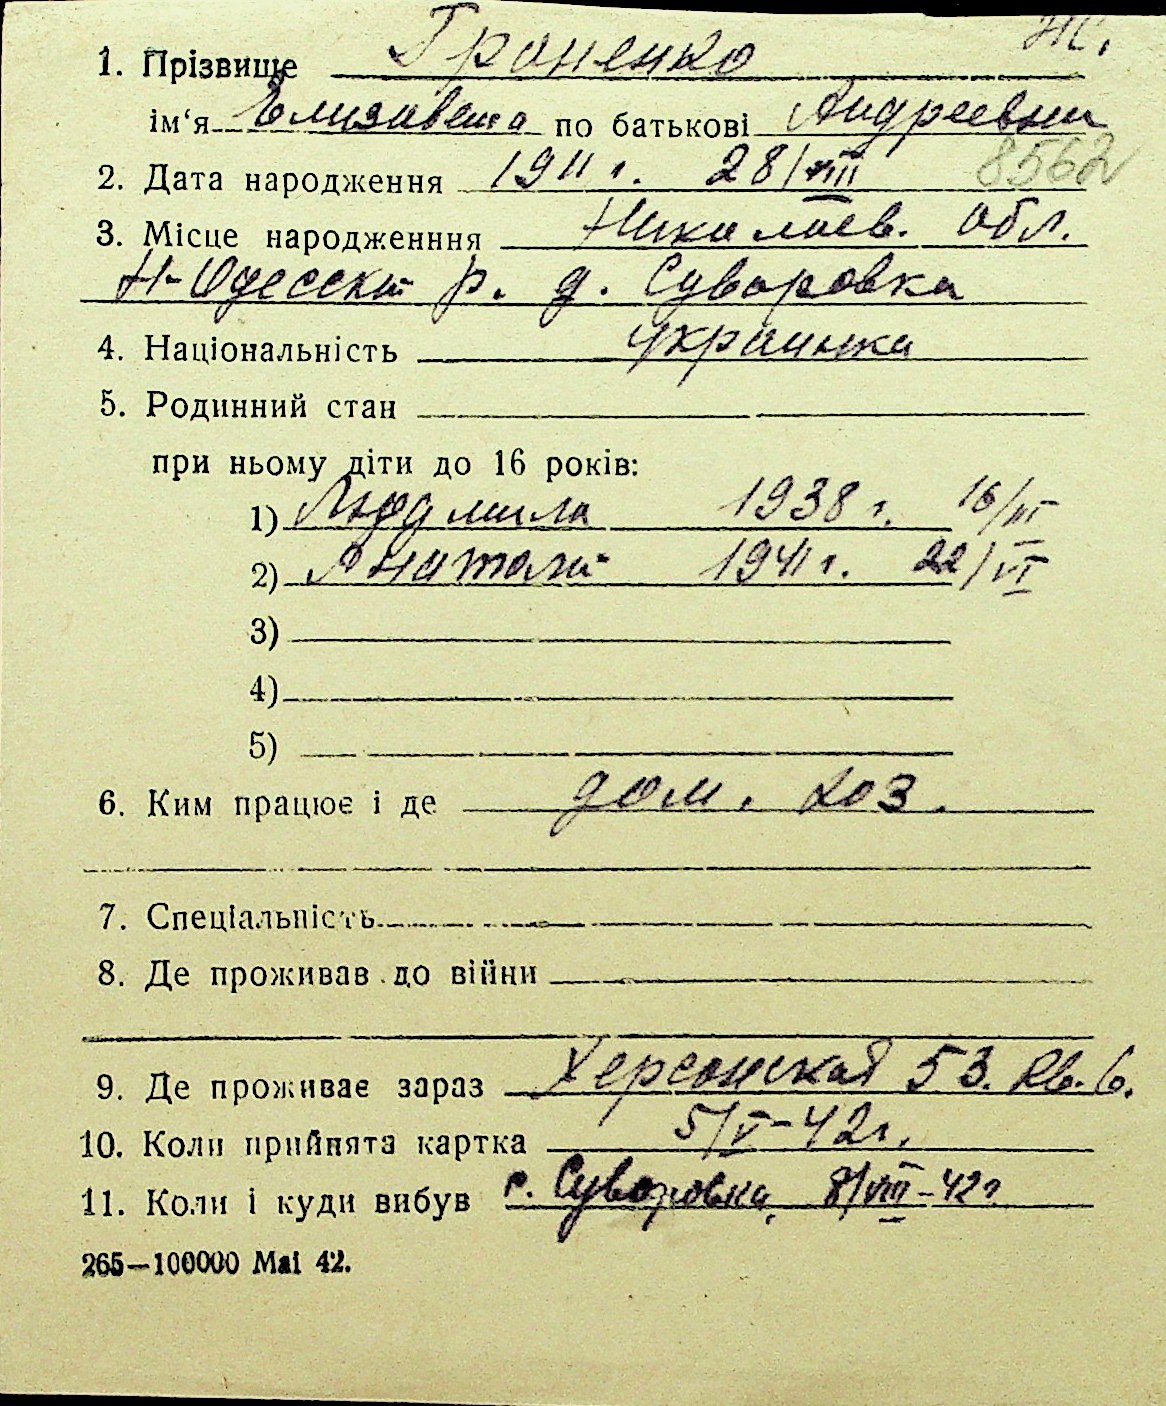 Ж.
1. Прізвище Гроненко
ім'я Елизавета по батькові Андреевна
8562
2. Дата народження 1911 г. 28/VIII
3. Місце народженння Николаев. обл.
Н-Одесский р. д. Суворовка
4. Національність украинка
5. Родинний стан
при ньому діти до 16 років:
1) Людмила 1938 г. 16/III
2) Анатолий 1941 г. 22/VI
3)
4)
5)
6. Ким працює і де дом. хоз.
7. Спеціальність
8. Де проживав до війни
9. Де проживає зараз Херсонская 53. кв. 6.
10. Коли прийнята картка 5/V-42 г.
11. Коли і куди вибув с. Суворовка, 8/VIII-42 г
265—100000 Mai 42.